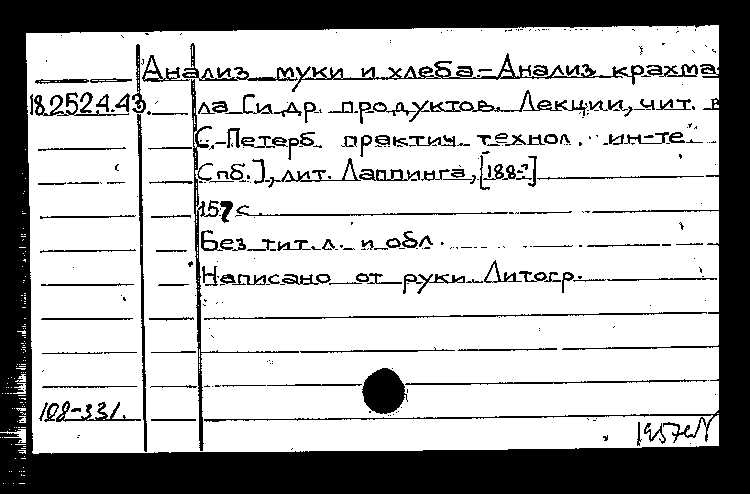 Анализ муки и хлеба.-Анализ крахма
18.252.4.43. ла [и др. продуктов. Лекции, чит. в
С.-Петерб. практич. технол. ин-те.
Спб.], лит. Лаппинга, [188-?]
157 с.
Без тит. л. и обл.
Написано от руки. Литогр.
108-331.